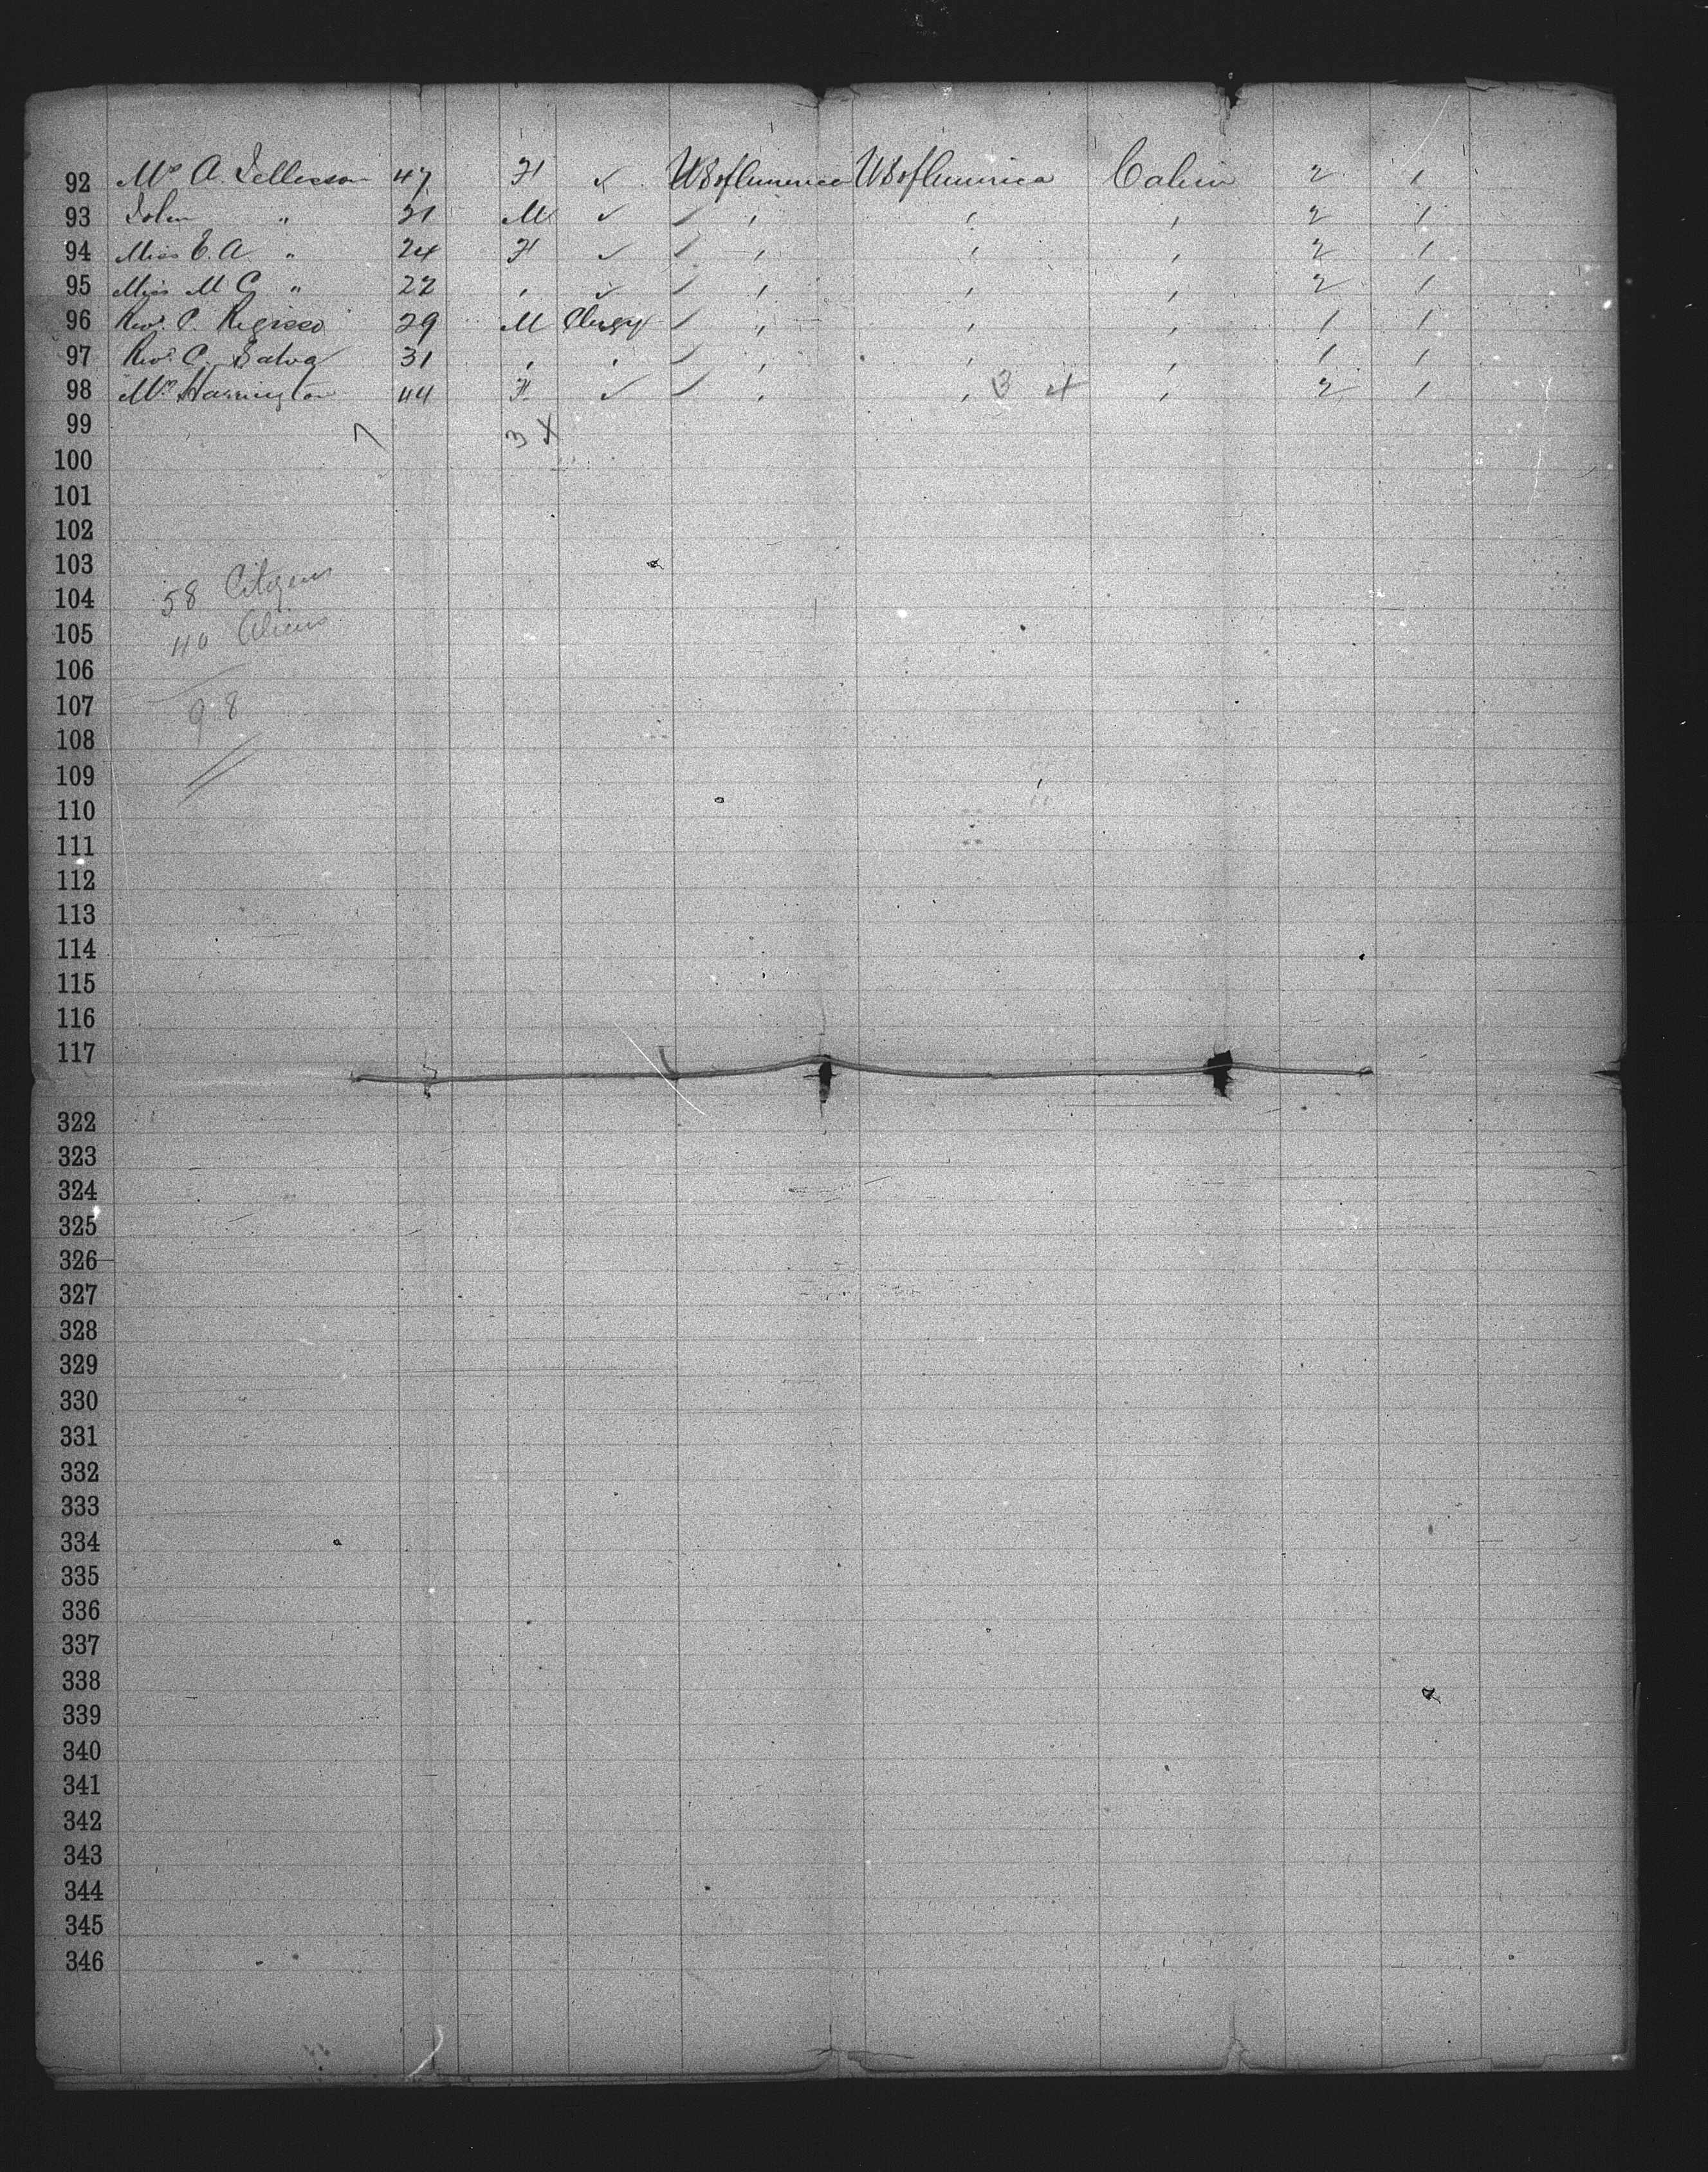 92 Mrs A. Jellesson 47 F ✓ US of America US of America Cabin 2 1
93 John " 21 M ✓ / , , , 2 1
94 Miss E. A. " 24 F ✓ / , , , 2 1
95 Miss M C " 22 , ✓ / , , , 2 1
96 Rev. P. 29 M Clergy / , , , 1 1
97 Rev. C. 31 , , / , , , 1 1
98 Mrs Harrington 44 F ✓ / , , 3 4 , 2 1
99 7 3 X
100
101
102
103
58 Citizens
104
105
40 Aliens
106
107
98
108
109
110
111
112
113
114
115
116
117
322
323
324
325
326
327
328
329
330
331
332
333
334
335
336
337
338
339
340
341
342
343
344
345
346